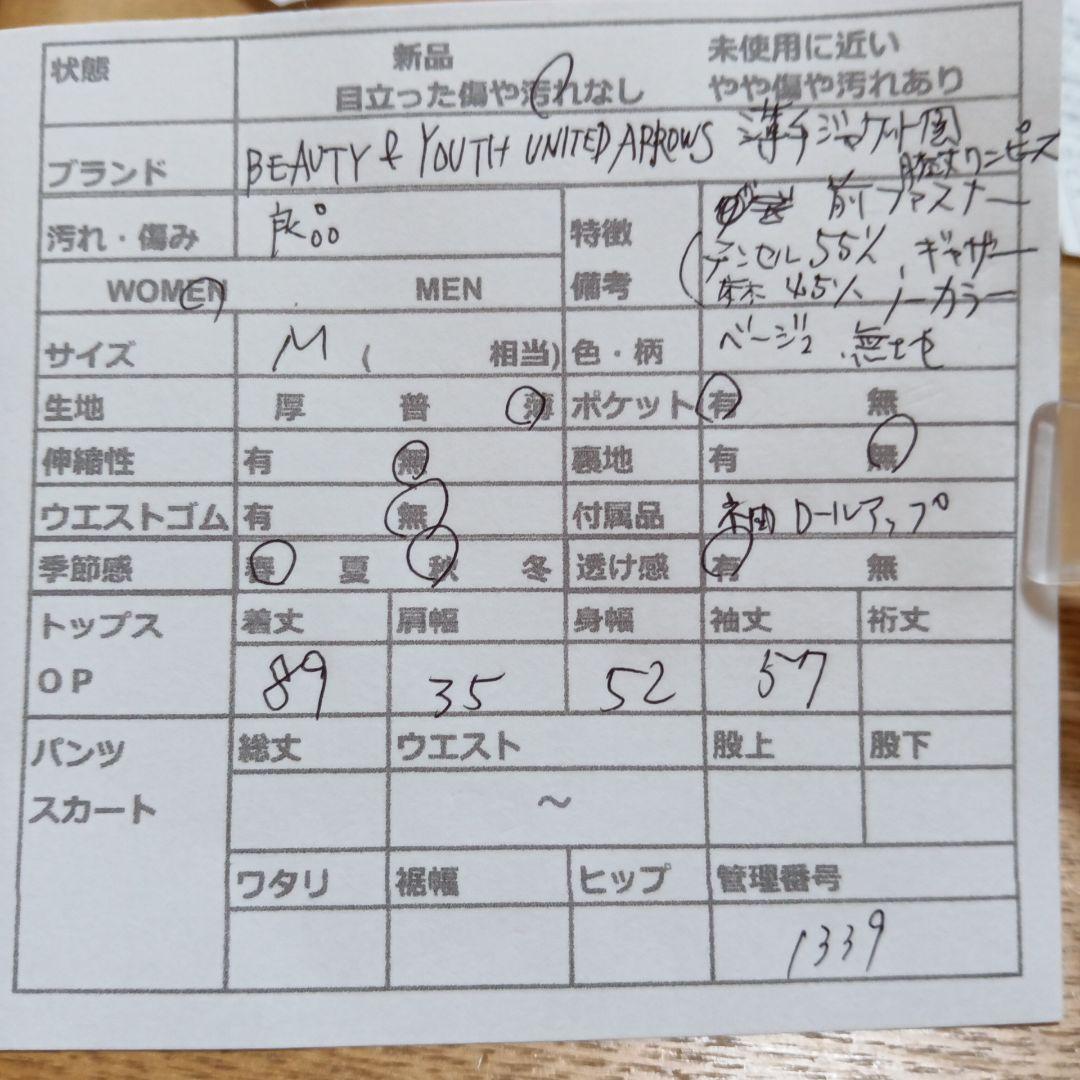 状態 新品 未使用に近い
目立った傷や汚れなし やや傷や汚れあり
ブランド BEAUTY & YOUTH UNITED ARROWS 薄手ジャケット
膝丈ワンピース
汚れ・傷み 良品 特徴 前ファスナー
テンセル55% ギャザー
WOMEN MEN 備考 麻45% ノーカラー
サイズ M ( 相当) 色・柄 ベージュ 無地
生地 厚 普 薄 ポケット 有 無
伸縮性 有 無 裏地 有 無
ウエストゴム 有 無 付属品 ロールアップ
季節感 春 夏 秋 冬 透け感 有 無
トップス 着丈 肩幅 身幅 袖丈 裄丈
OP 89 35 52 57
パンツ 総丈 ウエスト 股上 股下
スカート ～
ワタリ 裾幅 ヒップ 管理番号
1339